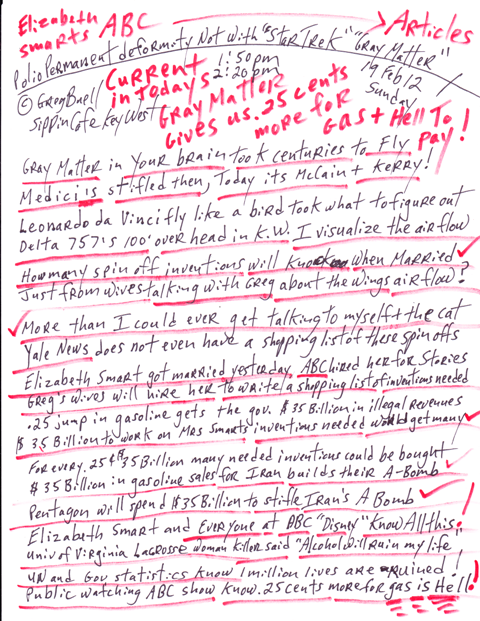 Elizabeth Smarts ABC → Articles
Polio Permanent deformity Not with "Star Trek" "Gray Matter"
1:50pm
2:20pm
19 Feb/12
Sunday
© Greg Buell
Sippin Cafe Key West
Current in todays
Gray Matter
Gives us .25 cents more for
gas + Hell To pay!
Gray Matter in your brain took centuries to Fly
Medici's stifled then, Today its McCain + Kerry!
Leonardo da Vinci fly like a bird took what to figure out
Delta 757's 100' over head in K.W. I visualize the air flow
How many spin off inventions will knock when Married
Just from wives talking with Greg about the wings air flow?
More than I could ever get talking to myself + the cat
Yale News does not even have a shopping list of these spin offs
Elizabeth Smart got married yesterday, ABC hired her for Stories
Greg's wives will hire her to write a shopping list of inventions needed
.25 jump in gasoline gets the gov. $35 Billion in illegal revenues
$3.5 Billion to work on Mrs Smarts inventions needed would get many
For every .25¢ $35 Billion many needed inventions could be bought
$35 Billion in gasoline sales for Iran builds their A-Bomb
Pentagon will spend $35 Billion to stifle Iran's A Bomb
Elizabeth Smart and everyone at ABC "Disney" Know All this!
univ of Virginia Lacrosse woman killer said "Alcohol will ruin my life"
UN and Gov statistics know 1 million lives are ruined!
Public watching ABC show know .25 cents more for gas is Hell!